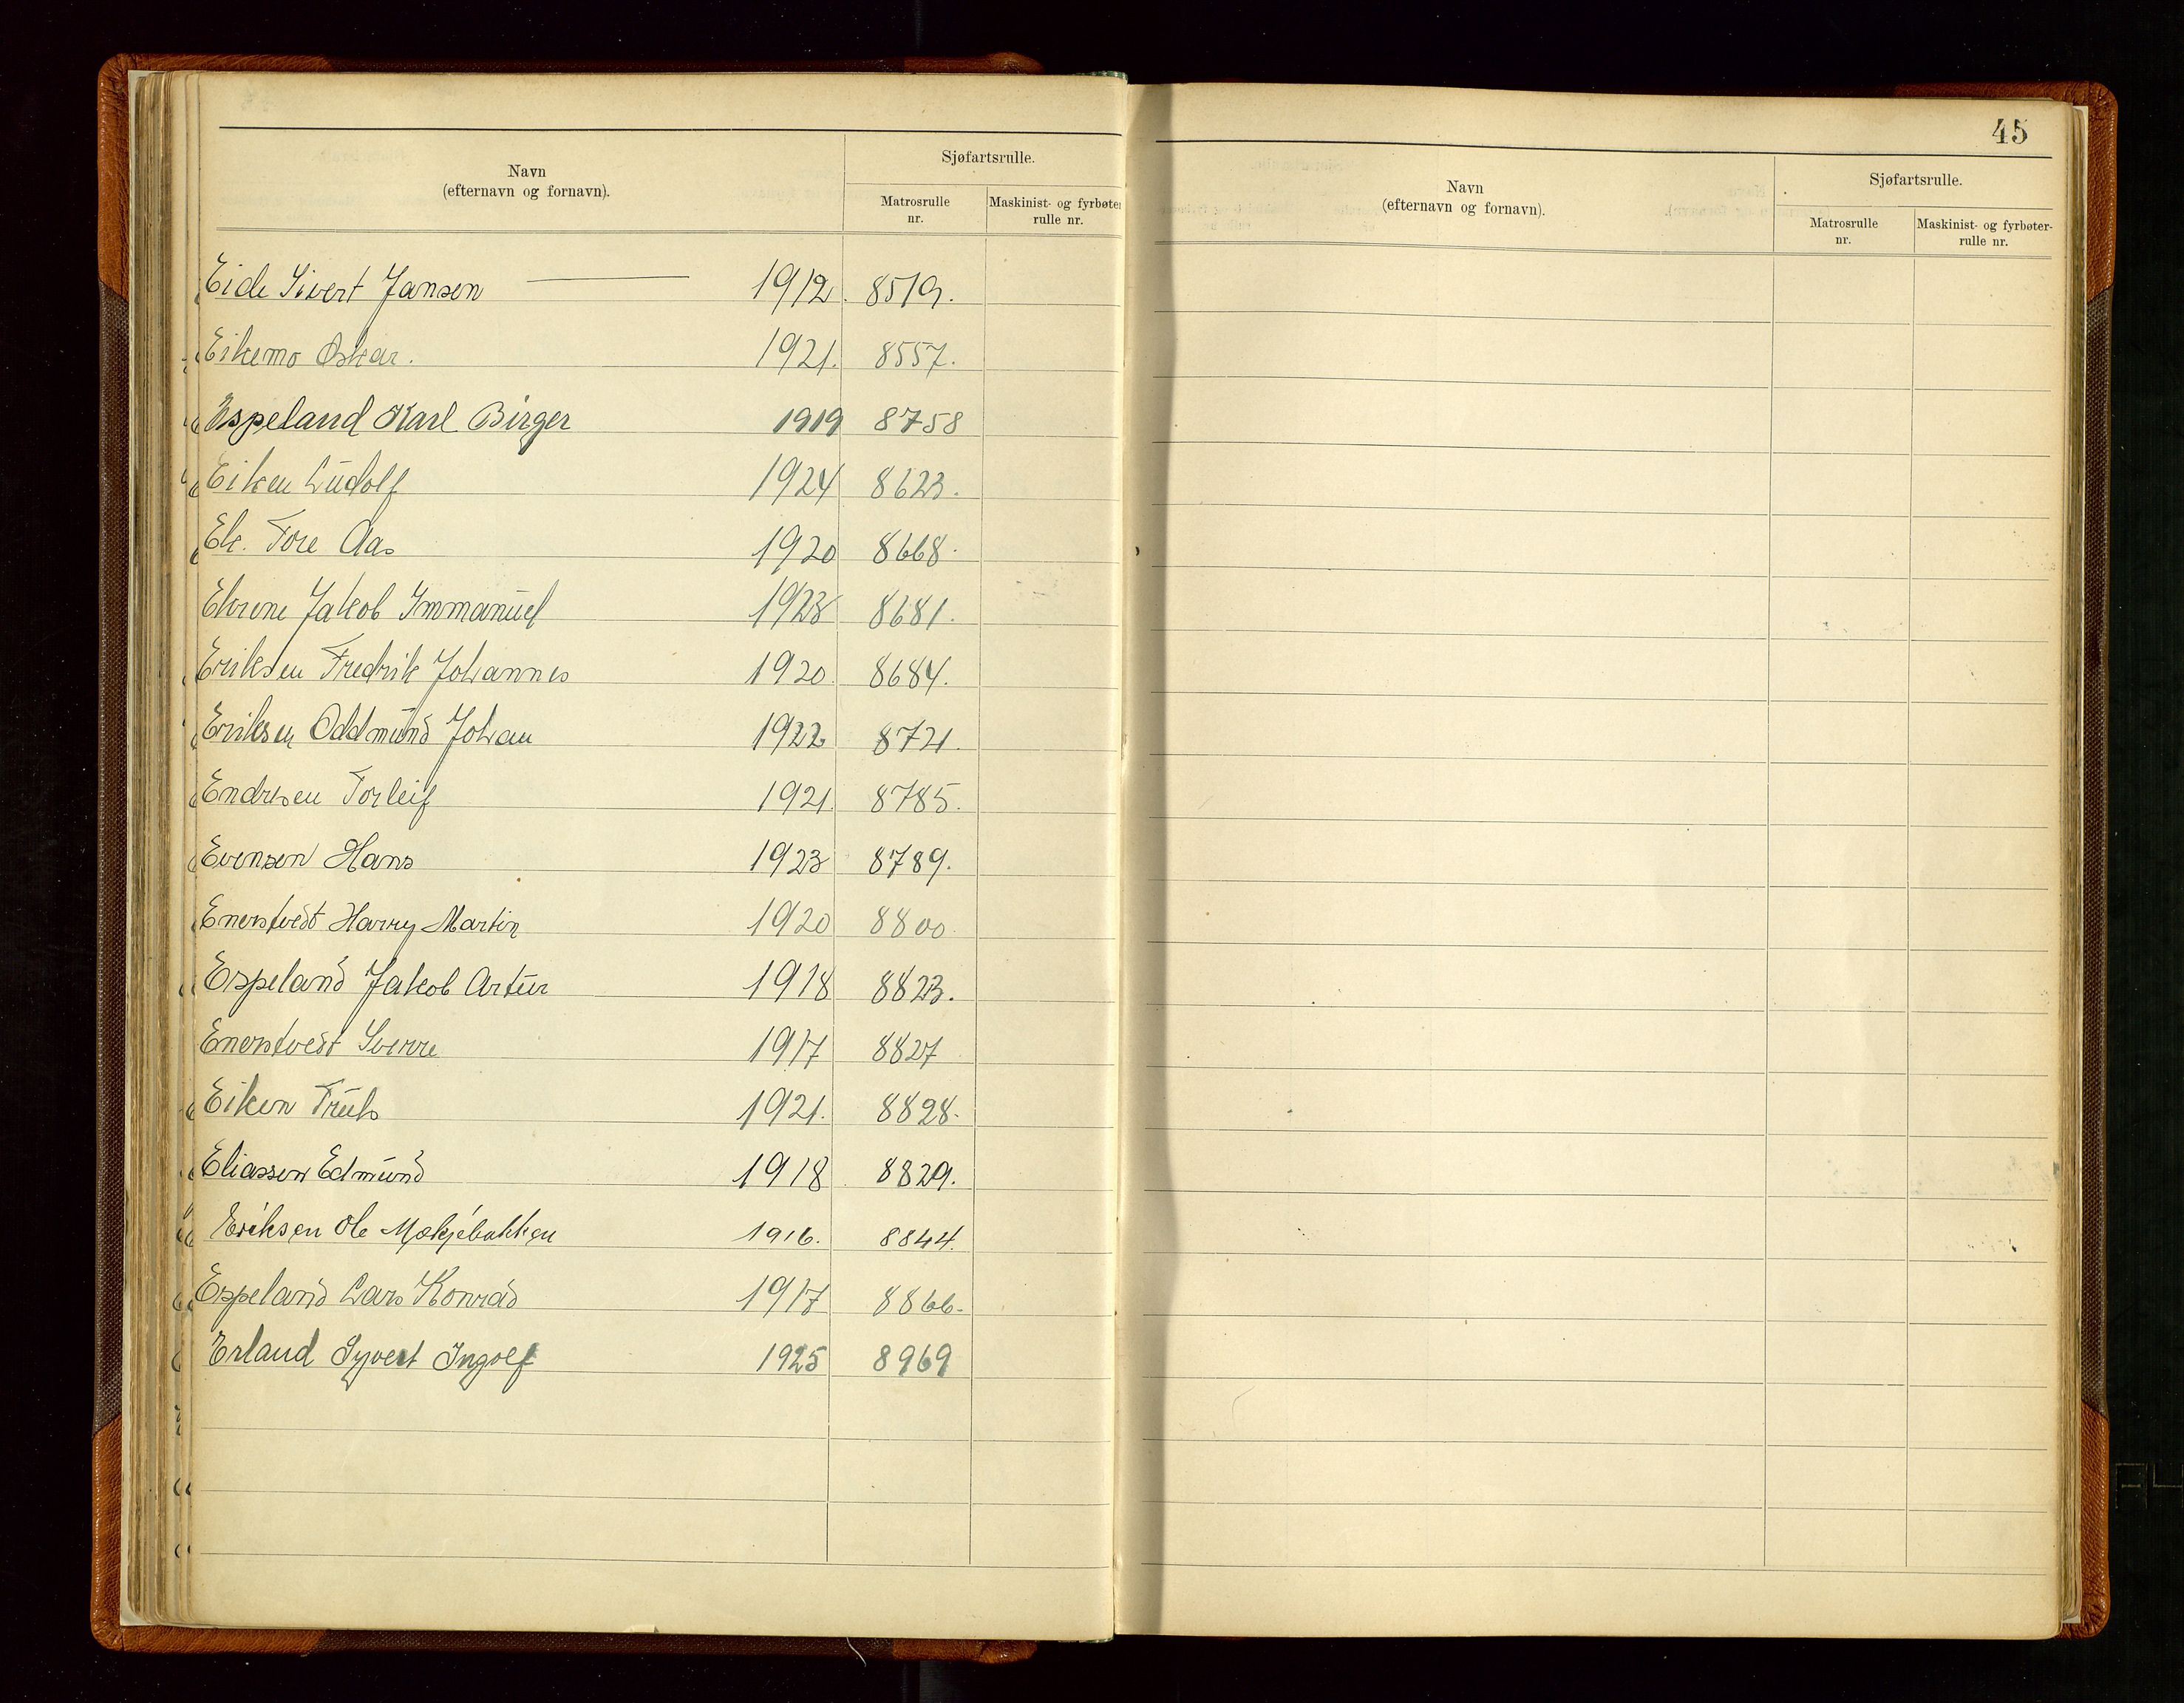 Navn
(efternavn og fornavn).
Sjøfartsrulle.
Matrosrulle
nr.
Maskinist- og fyrbøter
rulle nr.
Eide Sivert Jansen 1912. 8519.
Eikemo Oskar. 1921. 8557.
Espeland Karl Birger 1919 8758
Eiken Ludolf 1924 8623.
Ek. Tore Aas 1920 8668.
Jakob Immanuel 1923 8681.
Eriksen Fredrik Johannes 1920. 8684.
Eriksen Oddmund Johan 1922 8721.
Endresen Torleif 1921. 8785.
Evensen Hans 1923 8789.
Enerstvedt Harry Martin 1920 8800.
Espeland Jakob Artur 1918 8823.
Enerstvedt Sverre 1917 8827
Eiken Truls 1921. 8828.
Eliassen Edmund 1918 8829.
Eriksen Ole 1916. 8844.
Espeland Lars Konrad 1917 8866.
Erland Syvert Ingolf 1925 8969
45
Navn
(efternavn og fornavn).
Sjøfartsrulle.
Matrosrulle
nr.
Maskinist- og fyrbøter-
rulle nr.